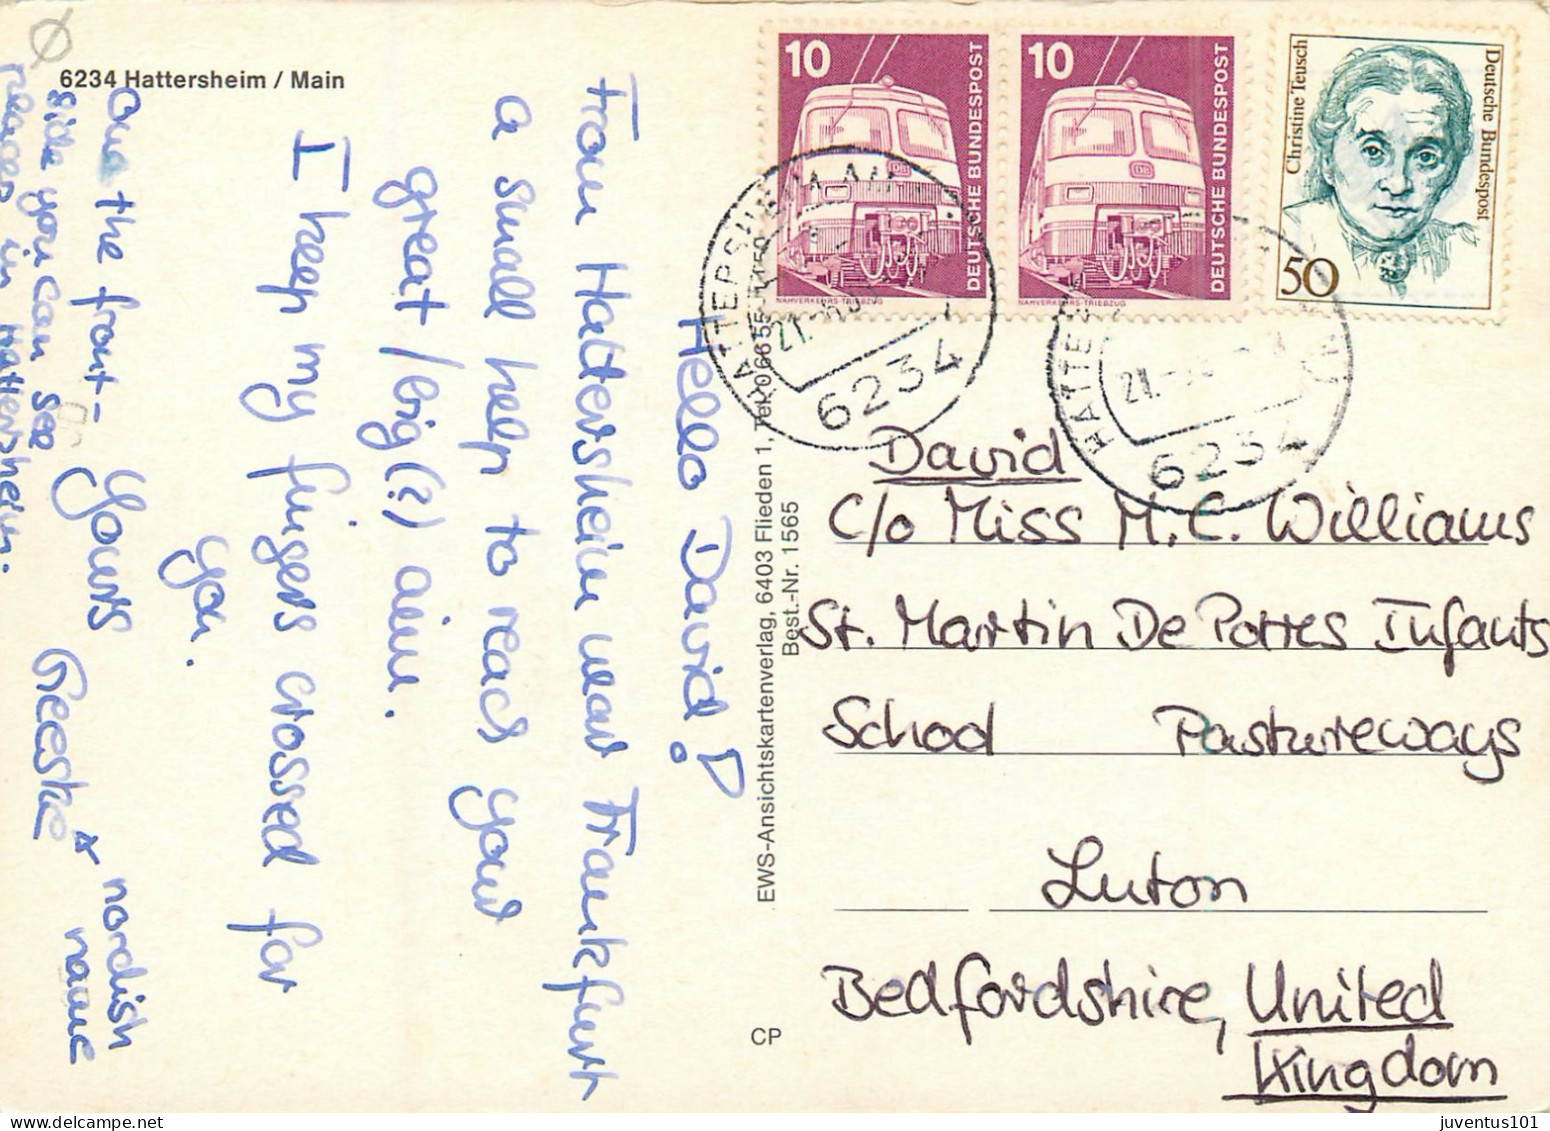 6234 Hattersheim / Main
Hello David!
From Hattersheim near Frankfurt
a small help to reach your
great/big(?) aim.
I keep my fingers crossed for
you.
Yours Geeske
* nordish
name
One the front-
side you can see
places in Hattersheim.
EWS-Ansichtskartenverlag, 6403 Flieden 1, Tel. 06655-
Best.-Nr. 1565
CP
10
DEUTSCHE BUNDESPOST
NAHVERKEHRS-TRIEBZUG
10
DEUTSCHE BUNDESPOST
NAHVERKEHRS-TRIEBZUG
Christine Teusch
Deutsche Bundespost
50
HATTERSHEIM AM
21.
6234
HATTE
21.
6234
David
c/o Miss M. C. Williams
St. Martin De Porres Infants
School Pastureways
Luton
Bedfordshire, United
Kingdom
juventus101